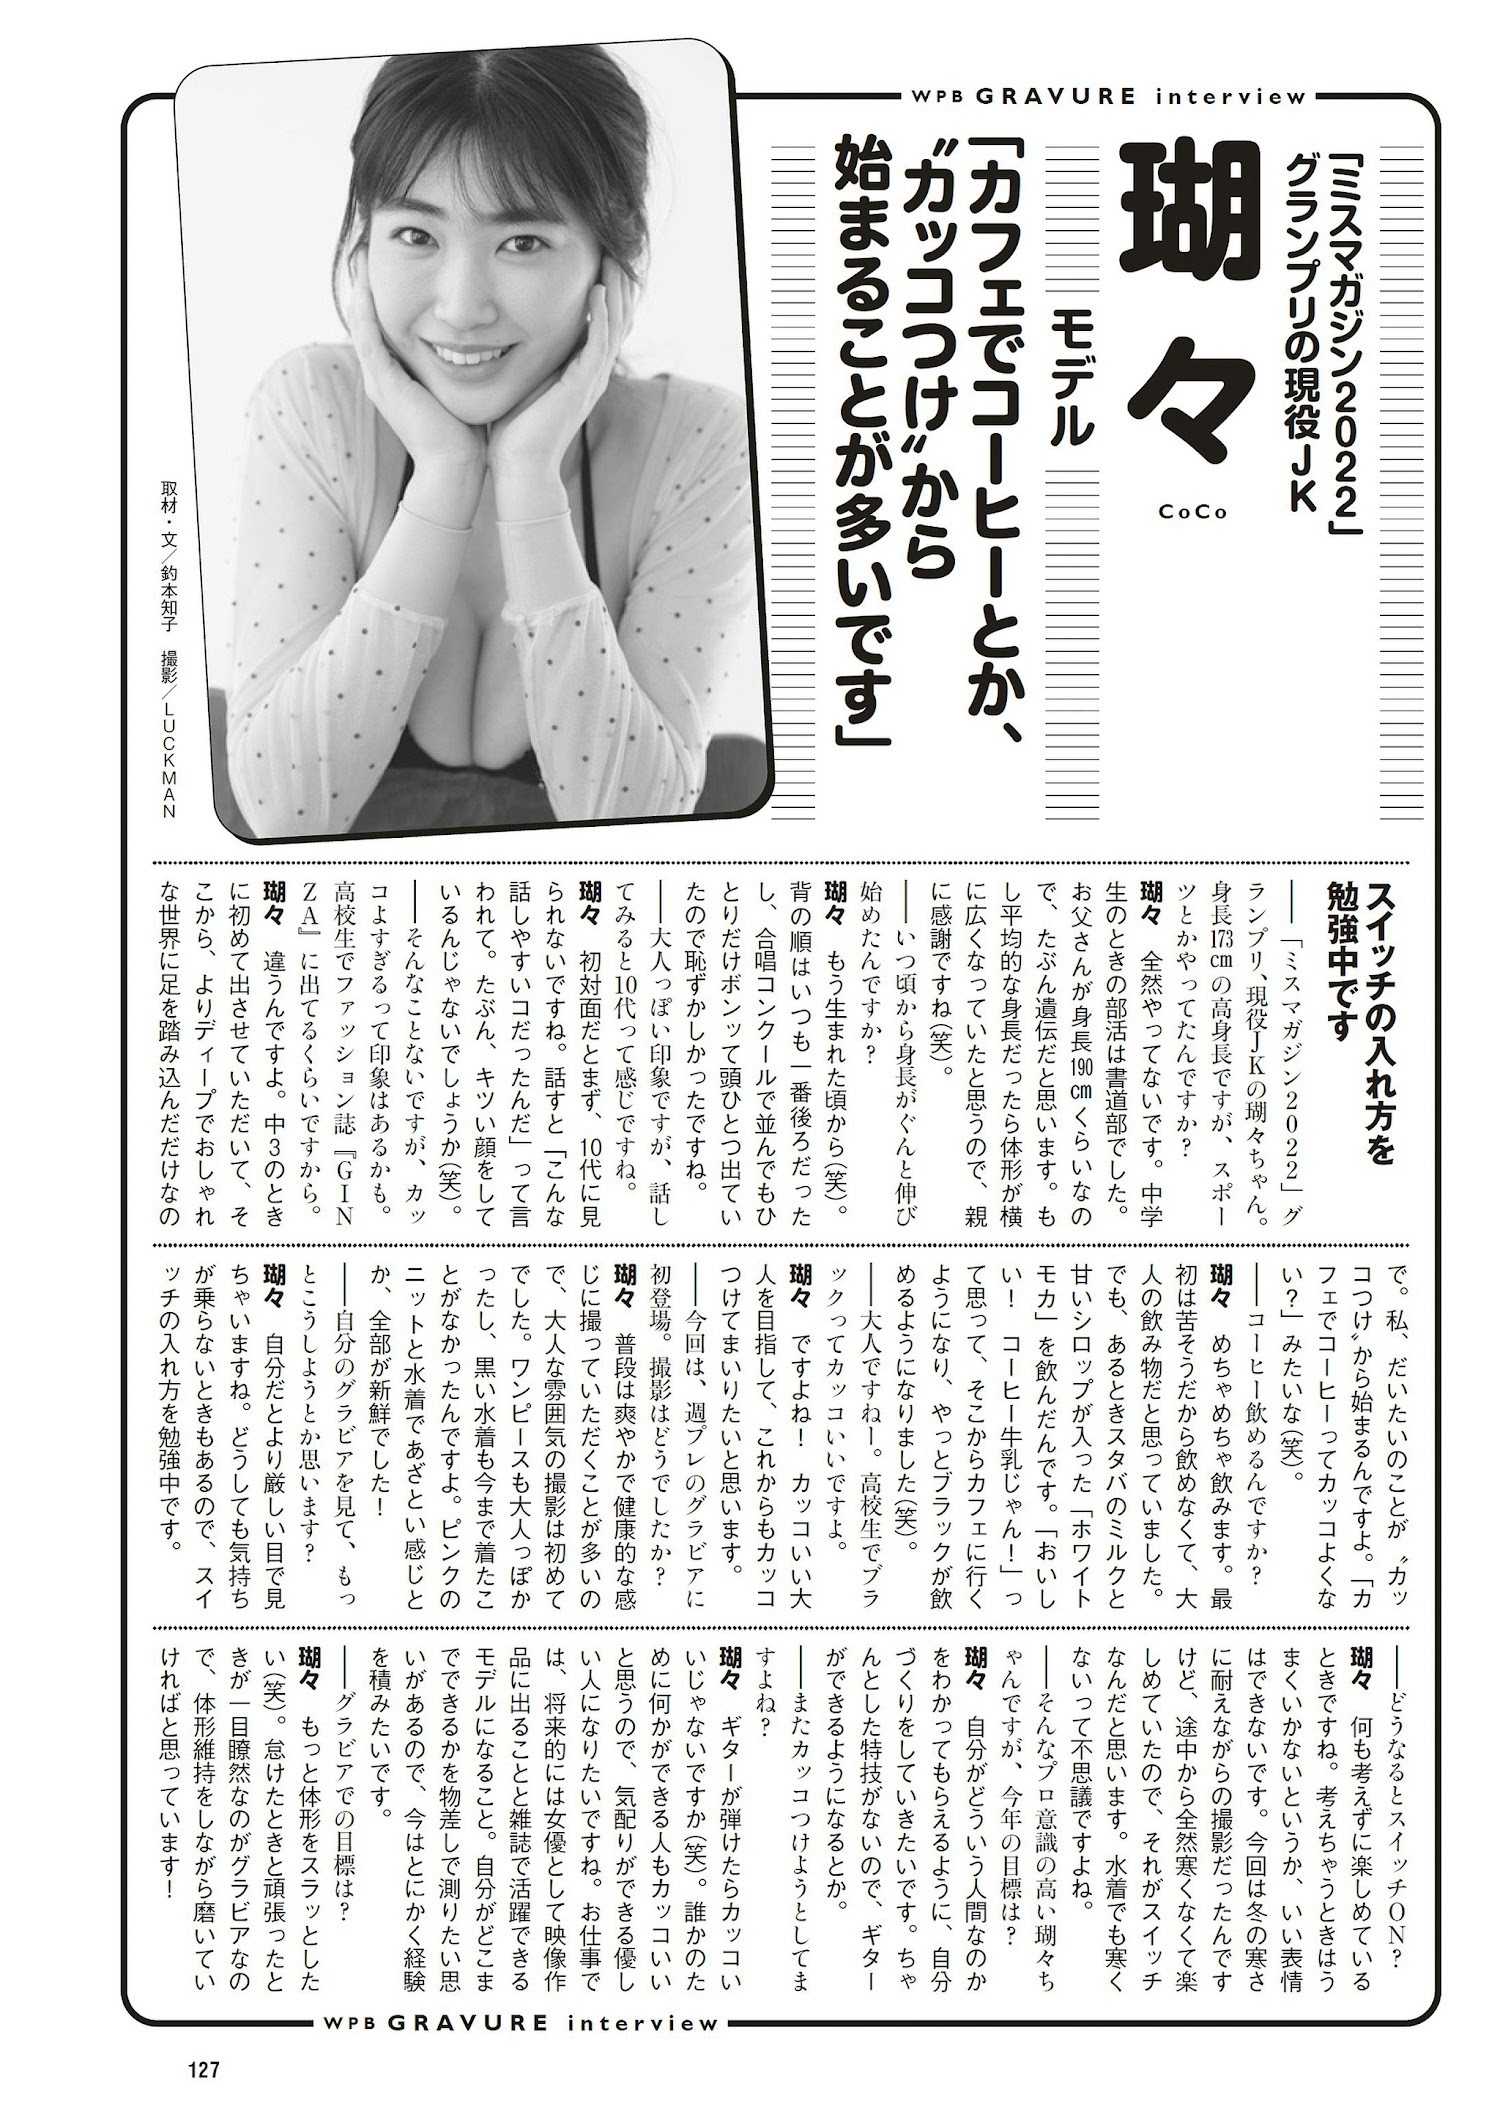 WPB GRAVURE interview
「ミスマガジン2022」
グランプリの現役JK
瑚々
CoCo
モデル
「カフェでコーヒーとか、
〝カッコつけ〟から
始まることが多いです」
取材・文／釣本知子　撮影／LUCKMAN
スイッチの入れ方を
勉強中です
――「ミスマガジン2022」グ
ランプリ、現役JKの瑚々ちゃん。
身長173㎝の高身長ですが、スポー
ツとかやってたんですか？
瑚々　全然やってないです。中学
生のときの部活は書道部でした。
お父さんが身長190㎝くらいなの
で、たぶん遺伝だと思います。も
し平均的な身長だったら体形が横
に広くなっていたと思うので、親
に感謝ですね(笑)。
――いつ頃から身長がぐんと伸び
始めたんですか？
瑚々　もう生まれた頃から(笑)。
背の順はいつも一番後ろだった
し、合唱コンクールで並んでもひ
とりだけボンッて頭ひとつ出てい
たので恥ずかしかったですね。
――大人っぽい印象ですが、話し
てみると10代って感じですね。
瑚々　初対面だとまず、10代に見
られないですね。話すと「こんな
話しやすいコだったんだ」って言
われて。たぶん、キツい顔をして
いるんじゃないでしょうか(笑)。
――そんなことないですが、カッ
コよすぎるって印象はあるかも。
高校生でファッション誌『GIN
ZA』に出てるくらいですから。
瑚々　違うんですよ。中3のとき
に初めて出させていただいて、そ
こから、よりディープでおしゃれ
な世界に足を踏み込んだだけなの
で。私、だいたいのことが〝カッ
コつけ〟から始まるんですよ。「カ
フェでコーヒーってカッコよくな
い？」みたいな(笑)。
――コーヒー飲めるんですか？
瑚々　めちゃめちゃ飲みます。最
初は苦そうだから飲めなくて、大
人の飲み物だと思っていました。
でも、あるときスタバのミルクと
甘いシロップが入った「ホワイト
モカ」を飲んだんです。「おいし
い！　コーヒー牛乳じゃん！」っ
て思って、そこからカフェに行く
ようになり、やっとブラックが飲
めるようになりました(笑)。
――大人ですねー。高校生でブラ
ックってカッコいいですよ。
瑚々　ですよね！　カッコいい大
人を目指して、これからもカッコ
つけてまいりたいと思います。
――今回は、週プレのグラビアに
初登場。撮影はどうでしたか？
瑚々　普段は爽やかで健康的な感
じに撮っていただくことが多いの
で、大人な雰囲気の撮影は初めて
でした。ワンピースも大人っぽか
ったし、黒い水着も今まで着たこ
とがなかったんですよ。ピンクの
ニットと水着であざとい感じと
か、全部が新鮮でした！
――自分のグラビアを見て、もっ
とこうしようとか思います？
瑚々　自分だとより厳しい目で見
ちゃいますね。どうしても気持ち
が乗らないときもあるので、スイ
ッチの入れ方を勉強中です。
――どうなるとスイッチON？
瑚々　何も考えずに楽しめている
ときですね。考えちゃうときはう
まくいかないというか、いい表情
はできないです。今回は冬の寒さ
に耐えながらの撮影だったんです
けど、途中から全然寒くなくて楽
しめていたので、それがスイッチ
なんだと思います。水着でも寒く
ないって不思議ですよね。
――そんなプロ意識の高い瑚々ち
ゃんですが、今年の目標は？
瑚々　自分がどういう人間なのか
をわかってもらえるように、自分
づくりをしていきたいです。ちゃ
んとした特技がないので、ギター
ができるようになるとか。
――またカッコつけようとしてま
すよね？
瑚々　ギターが弾けたらカッコい
いじゃないですか(笑)。誰かのた
めに何かができる人もカッコいい
と思うので、気配りができる優し
い人になりたいですね。お仕事で
は、将来的には女優として映像作
品に出ることと雑誌で活躍できる
モデルになること。自分がどこま
でできるかを物差しで測りたい思
いがあるので、今はとにかく経験
を積みたいです。
――グラビアでの目標は？
瑚々　もっと体形をスラッとした
い(笑)。怠けたときと頑張ったと
きが一目瞭然なのがグラビアなの
で、体形維持をしながら磨いてい
ければと思っています！
WPB GRAVURE interview
127